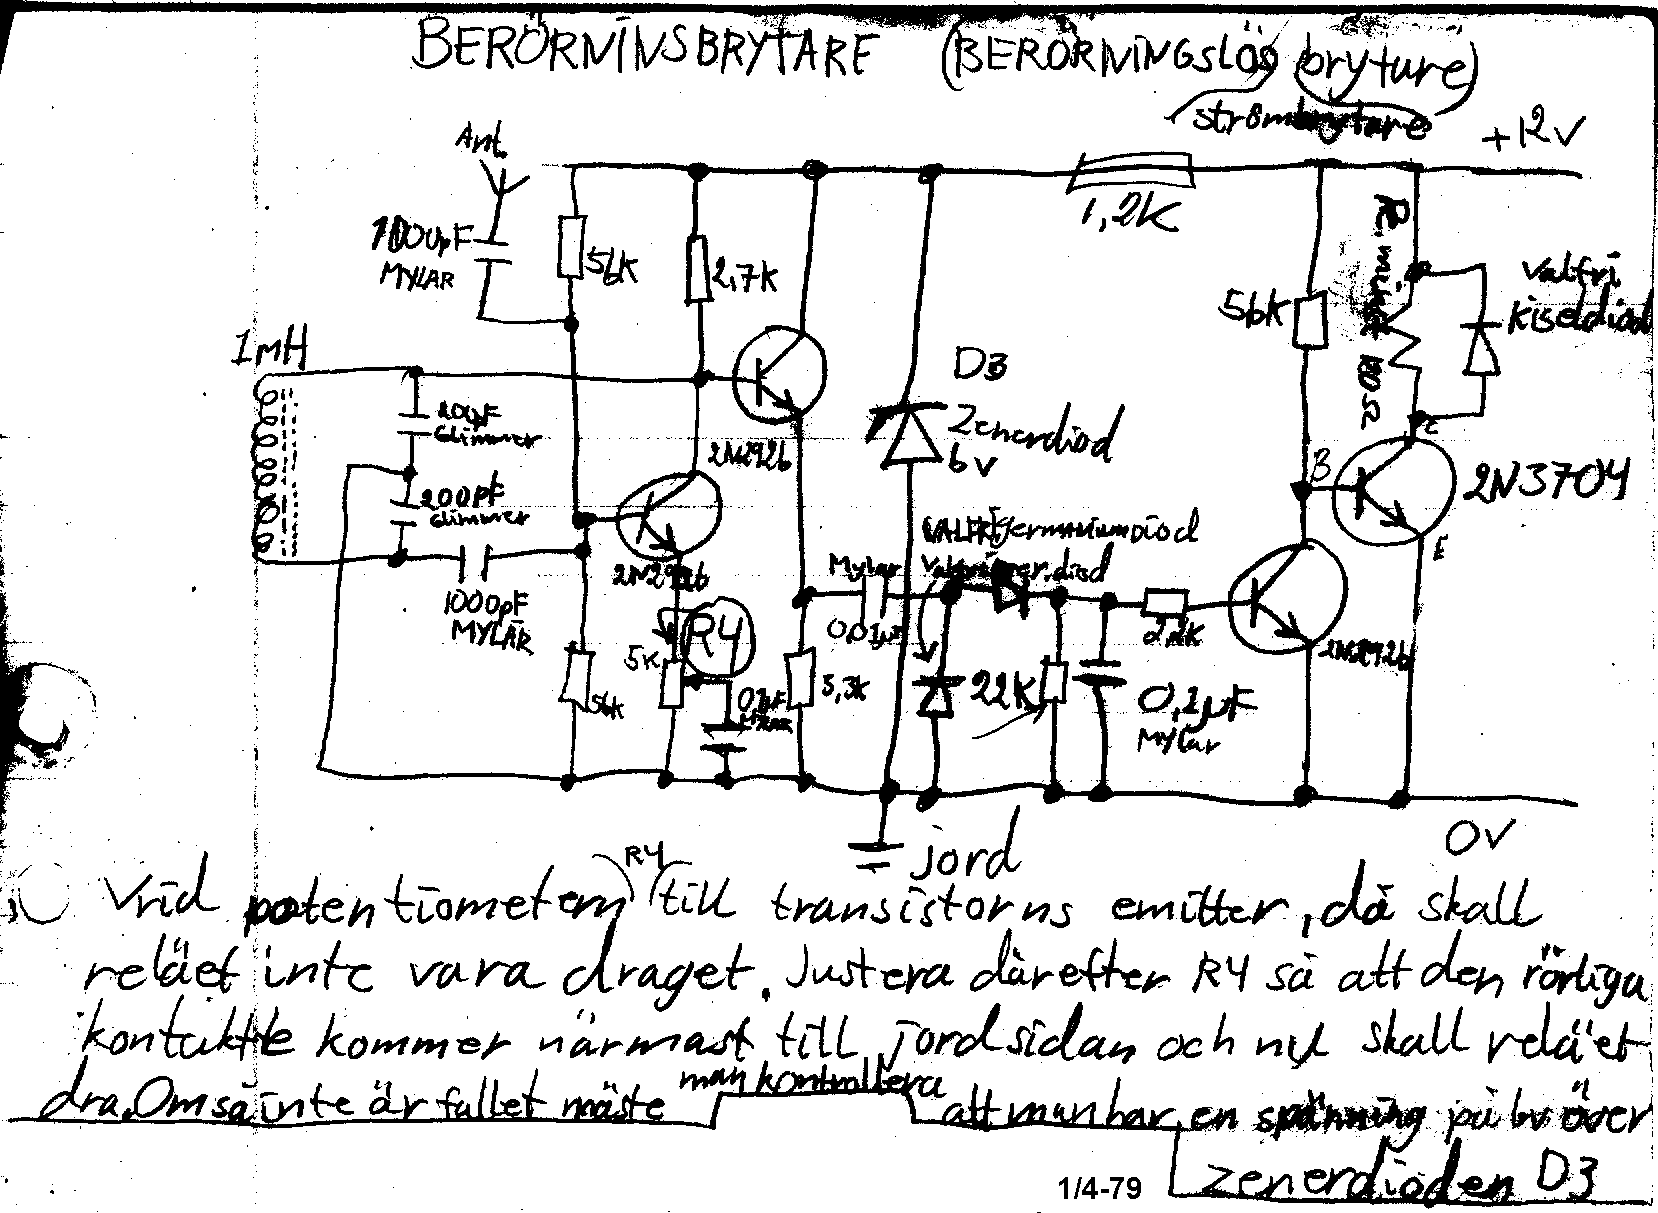 BERÖRNINSBRYTARE (BERÖRNINGSLÖS brytare)
strömbrytare
+12V
Ant.
1000pF
MYLAR
56K
2,7K
1,2K
Re. minst 180Ω
56K
Valfri.
Kiseldiod
1mH
D3
Zenerdiod
6V
20pF
Glimmer
200pF
Glimmer
2N2926
B
C
E
2N3704
VALFRI germaniumdiod
1000pF
MYLAR
2N2926
Mylar
0,01µF
R4
5K
56K
0,1µF
Mylar
3,3K
22K
2,2K
0,1µF
Mylar
2N2926
jord
0V
Vrid potentiometern R4 till transistorns emitter, då skall
reläet inte vara draget. Justera därefter R4 så att den rörliga
kontakte kommer närmast till jordsidan och nu skall reläet
dra. Om så inte är fallet måste man kontrollera att man har en spänning på 6v över
zenerdioden D3
1/4-79